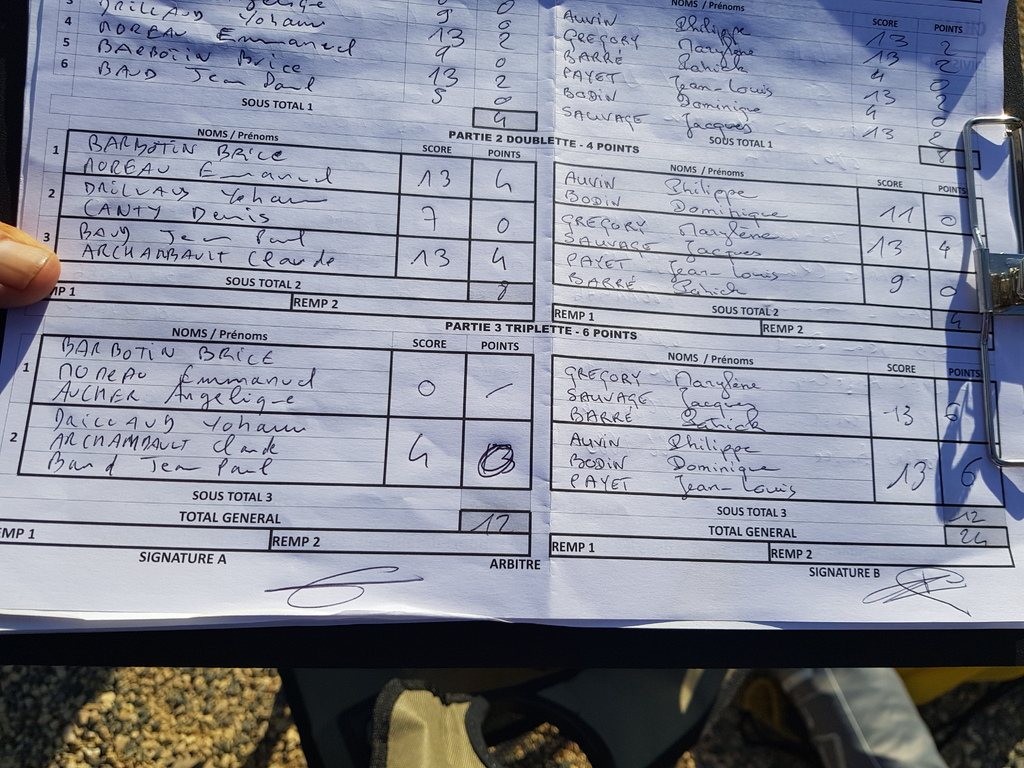 DRILLAUD Yohann 9 0
MOREAU Emmanuel 13 2
BARBOTIN Brice 9 0
BAUD Jean Paul 13 2
5 0
SOUS TOTAL 1 4
NOMS / Prénoms SCORE POINTS
AUVIN Philippe 13 2
GREGORY Marylène 13 2
BARRÉ Patrick 4 0
PAYET Jean-Louis 13 2
BODIN Dominique 4 0
SAUVAGE Jacques 13 2
SOUS TOTAL 1 8
PARTIE 2 DOUBLETTE - 4 POINTS
NOMS / Prénoms SCORE POINTS
1 BARBOTIN BRICE
MOREAU Emmanuel 13 4
2 DRILLAUD Yohann
CANTY Denis 7 0
3 BAUD Jean Paul
ARCHAMBAULT Claude 13 4
SOUS TOTAL 2 8
MP 1 REMP 2
NOMS / Prénoms SCORE POINTS
AUVIN Philippe
BODIN Dominique 11 0
GREGORY Marylène
SAUVAGE Jacques 13 4
PAYET Jean-Louis
BARRÉ Patrick 9 0
SOUS TOTAL 2 4
REMP 1 REMP 2
PARTIE 3 TRIPLETTE - 6 POINTS
NOMS / Prénoms SCORE POINTS
1 BARBOTIN BRICE
MOREAU Emmanuel 0 /
AUCHER Angelique
2 DRILLAUD Yohann
ARCHAMBAULT Claude 4
Baud Jean Paul
SOUS TOTAL 3
TOTAL GENERAL 12
EMP 1 REMP 2
SIGNATURE A
NOMS / Prénoms SCORE POINTS
GREGORY Marylène
SAUVAGE Jacques 13 6
BARRÉ Patrick
AUVIN Philippe
BODIN Dominique 13 6
PAYET Jean-Louis
SOUS TOTAL 3 12
TOTAL GENERAL 24
REMP 1 REMP 2
ARBITRE
SIGNATURE B